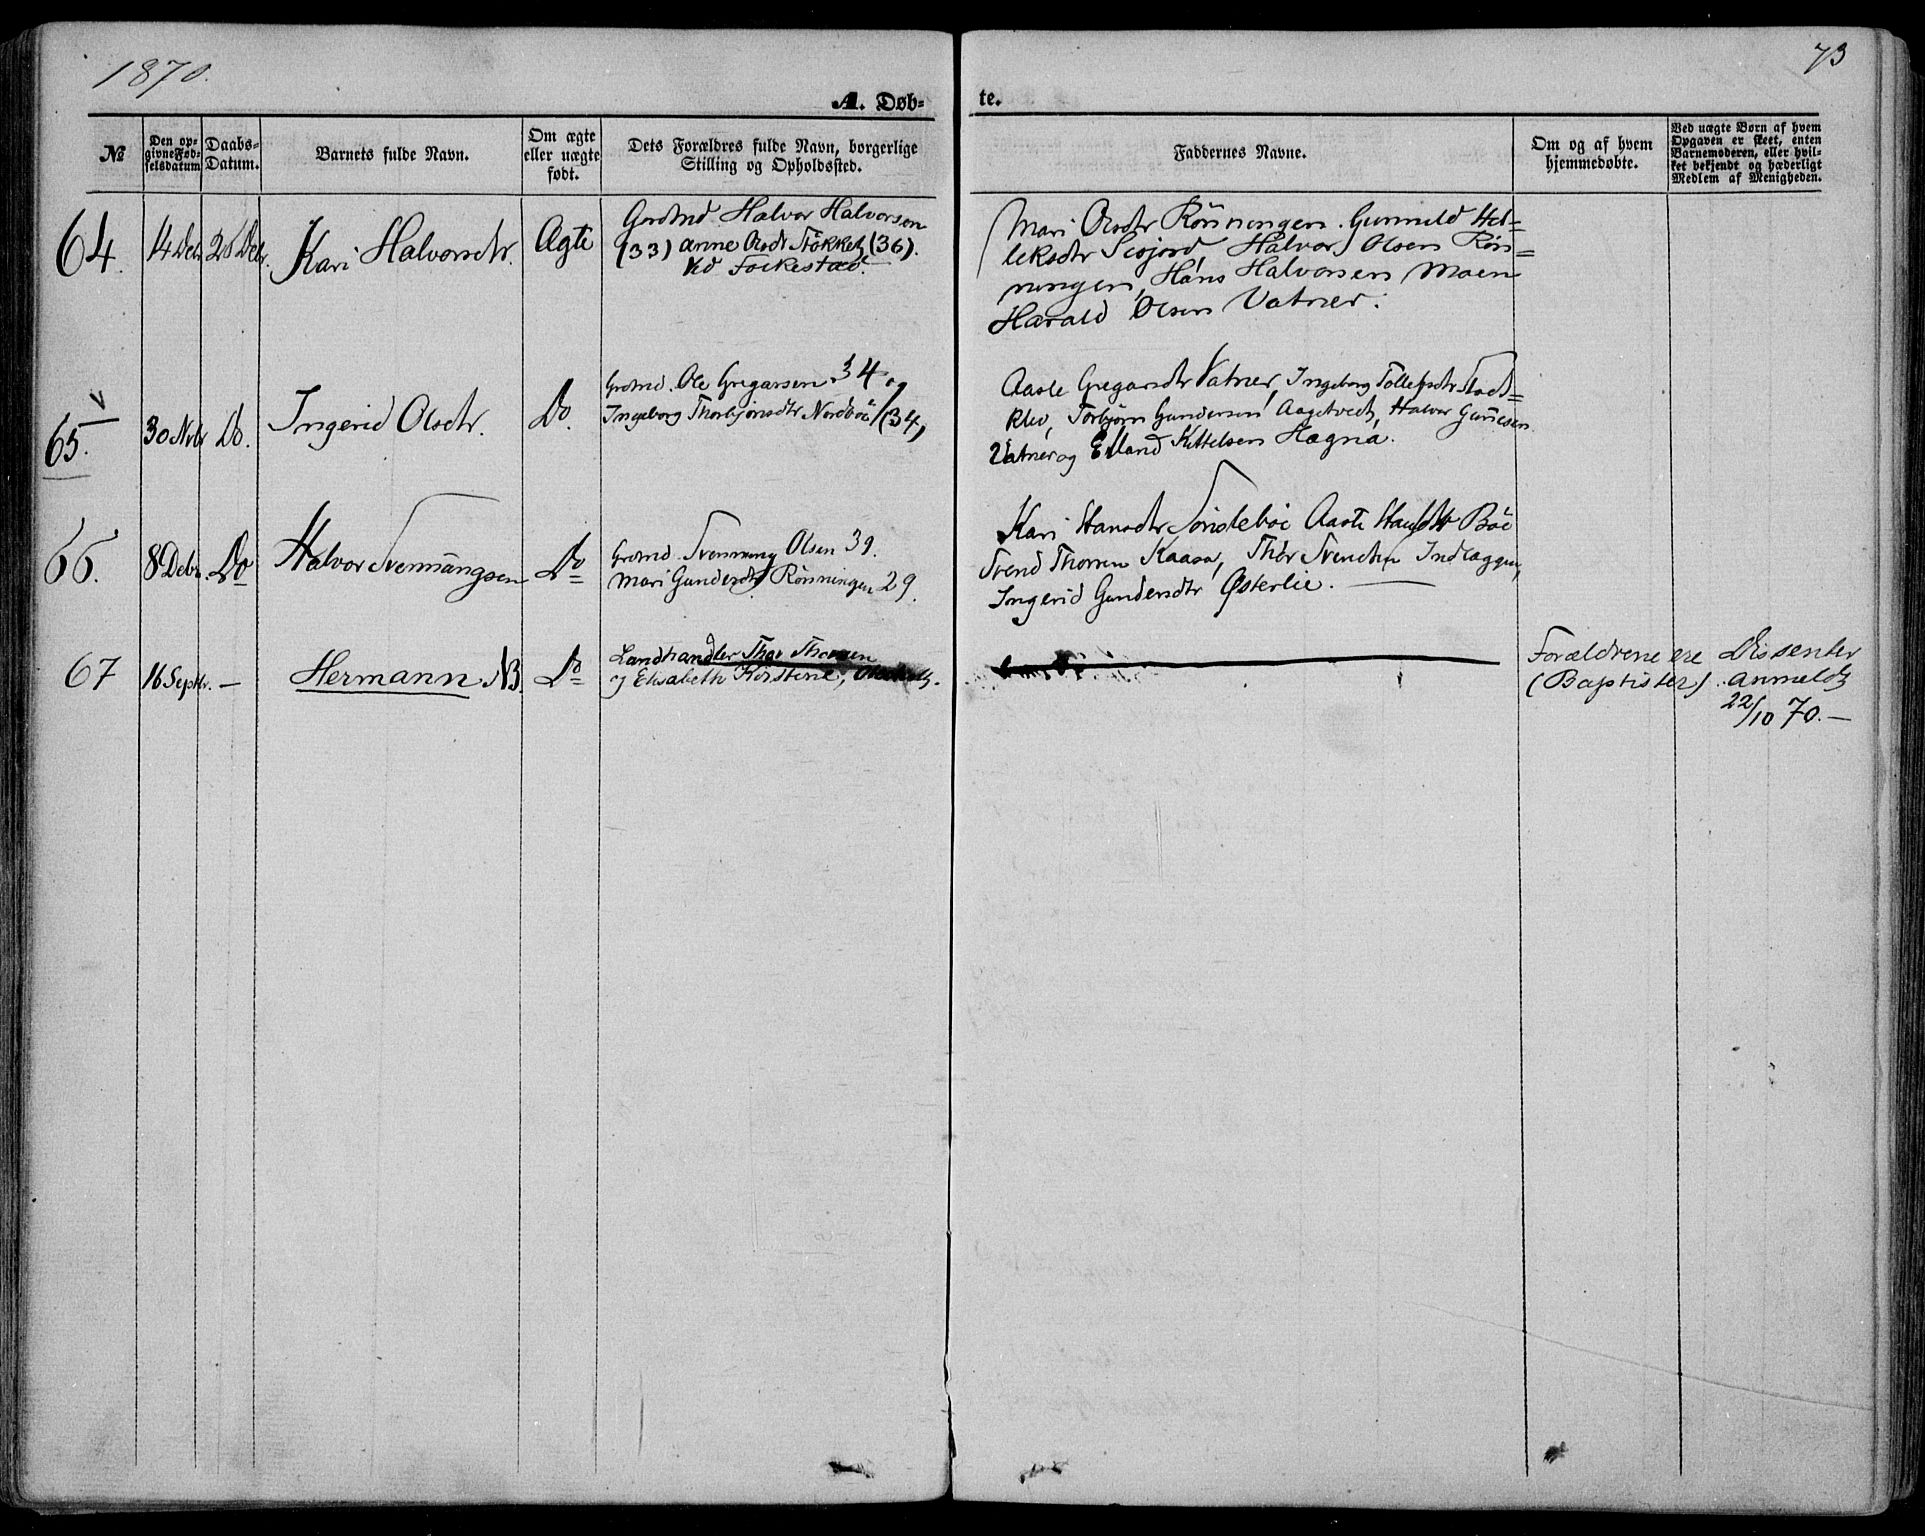 1870.
73
A. Døb-
te.
№
Den op-
givne Fød-
selsdatum
Daabs-
Datum.
Barnets fulde Navn.
Om ægte
eller uægte
født.
Dets Forældres fulde Navn, borgerlige
Stilling og Opholdssted.
Faddernes Navne.
Om og af hvem
hjemmedøbte.
Ved uægte Børn af hvem
Opgaven er skeet, enten
Barnemoderen, eller hvil-
ket bekjendt og hæderligt
Medlem af Menigheden.
64.
14 Debr
26 Debr.
Kari Halvorsdtr.
Ægte
Halvor Halvorsen
(33) Anne Olsdr Stokket (36).
Ved Folkestad.
Mari Olsdtr Rönningen. Gunnild Hel=
leksdtr Halvor Olsen Rön=
ningen, Hans Halvorsen Moen
Harald Olsen Vatner.
65.
30 Nvbr
Do.
Ingerid Olsdtr.
Do.
Grdmd. Ole Gregarsen 34 og
Ingeborg Thorbjönsdtr Nordböe (34)
Aaste Gregarsdtr Vatner, Ingeborg Tollefsdtr Stad=
klev, Torbjørn Gundersen Aagetvedt, Halvor Gunnesen
Vatner og Elland Kittelsen Hægna.
66.
8 Debr.
Do
Halvor Svennungsen
Do
Grdmd. Svennung Olsen 39.
Mari Gundersdtr Rönningen 29.
Kari Hansdtr Sönsteböe Aaste Hansdtr Böe
Svend Thorsen Kaasa, Thor Svendsen Indlæggen,
Ingerid Gundersdtr Østerlie.
67
16 Septbr.
—
Hermann NB.
Do
Landhandler Thor Thorsen
og Elisabeth Kirstine,
Forældrene ere Dissenter
(Baptister). Anmeldt
22/10 70.—